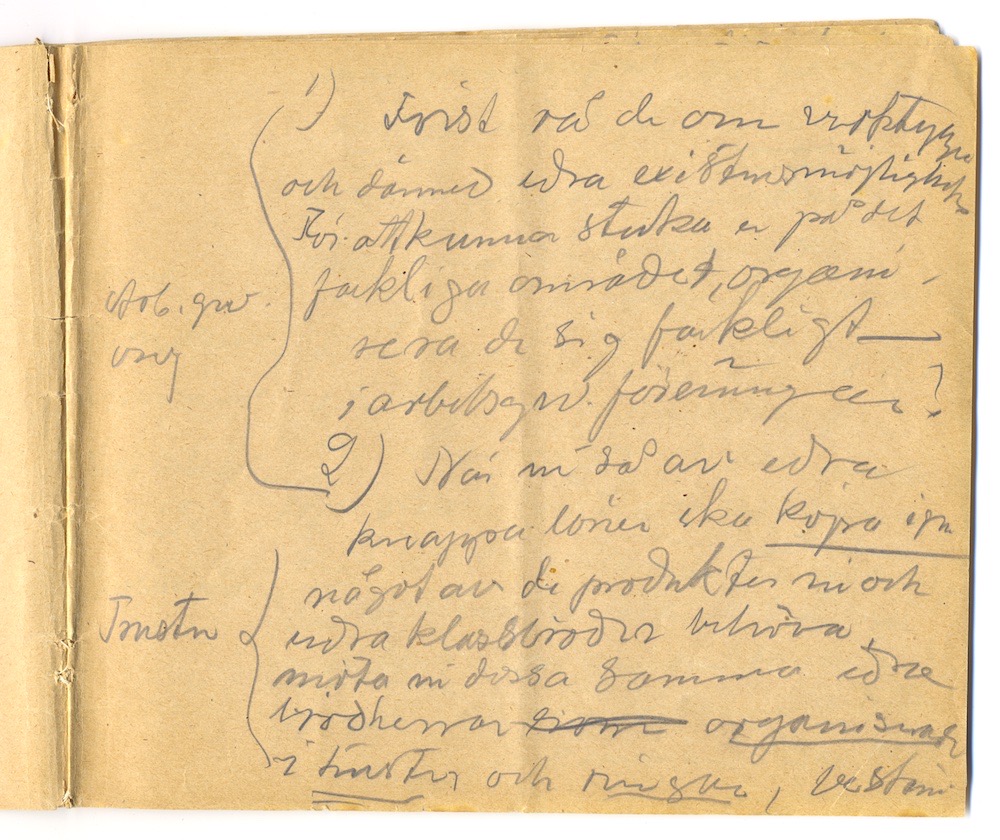 1) Först rå de om verktygen
och därmed edra existensmöjligheter
För att kunna stuka er på det
fackliga området, organi-
Arb. giv.
org
sera de sig fackligt —
i arbetsgiv. föreningen?
2) När ni så av edra
knappa löner ska köpa igen
något av de produkter ni och
Truster
edra klassbröder behöva,
möta ni dessa samma edra
brödherrar som organiserade
i truster och ringar, bestäm